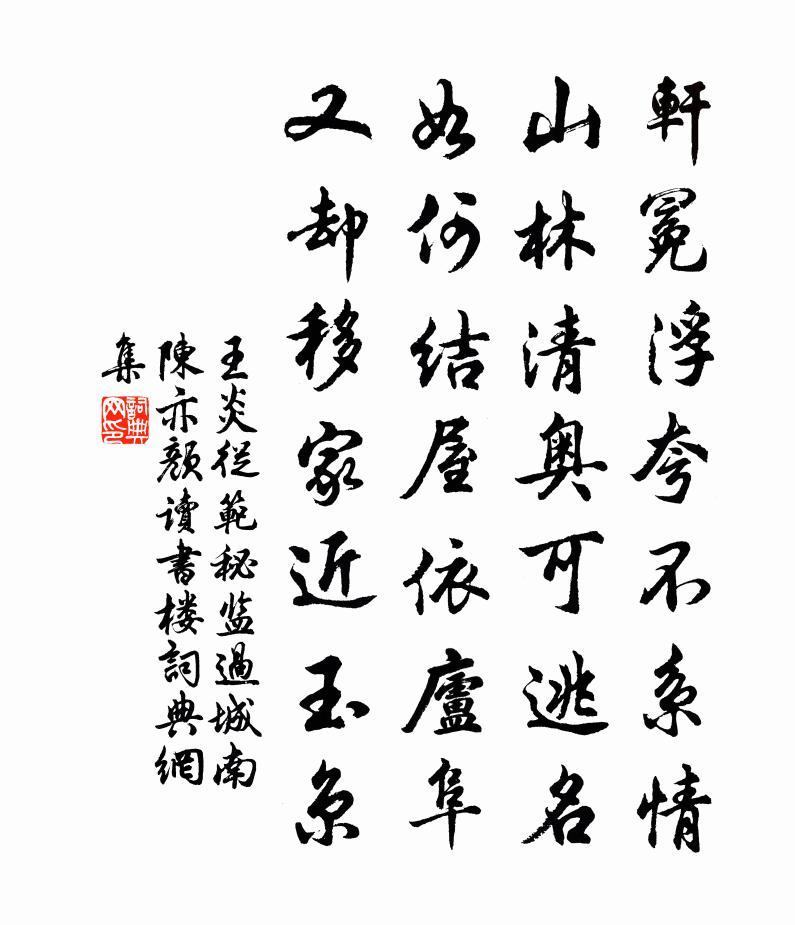 軒冕浮夸不系情
山林清奧可逃名
如何結屋依廬阜
又却移家近玉京
王炎從範秘监過城南
陳亦顏读書楼詞典網
集
詞典网印